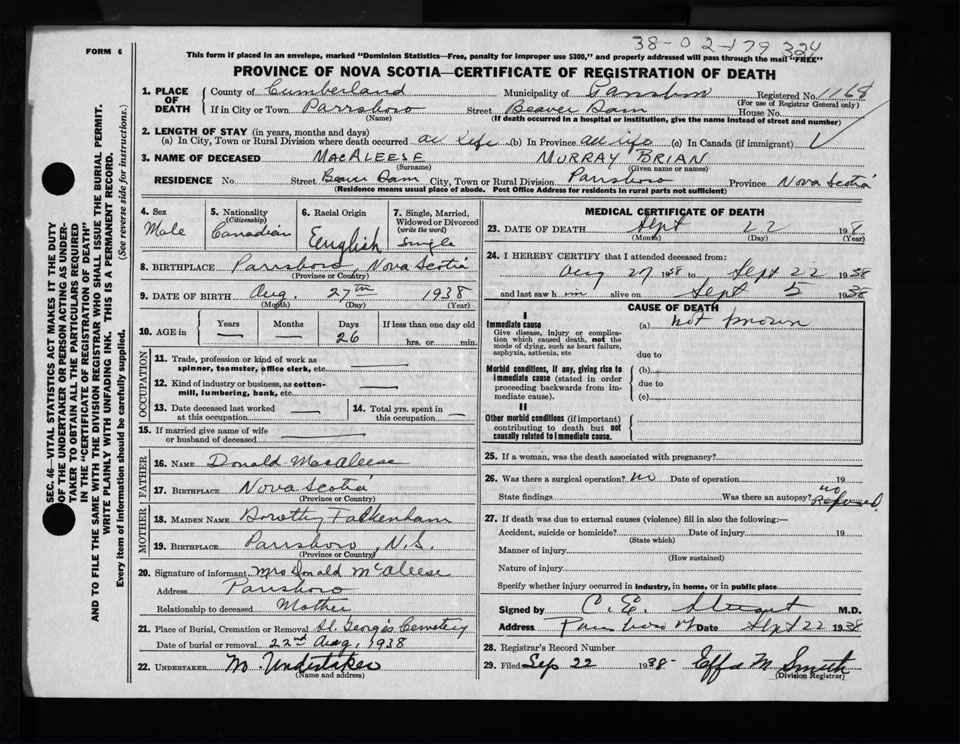 38-02-179 324
FORM 6
This form if placed in an envelope, marked "Dominion Statistics—Free, penalty for improper use $300," and properly addressed will pass through the mail "FREE"
PROVINCE OF NOVA SCOTIA—CERTIFICATE OF REGISTRATION OF DEATH
SEC. 46—VITAL STATISTICS ACT MAKES IT THE DUTY
OF THE UNDERTAKER OR PERSON ACTING AS UNDER-
TAKER TO OBTAIN ALL THE PARTICULARS REQUIRED
IN THE "CERTIFICATE OF REGISTRATION OF DEATH"
AND TO FILE THE SAME WITH THE DIVISION REGISTRAR WHO SHALL ISSUE THE BURIAL PERMIT.
WRITE PLAINLY WITH UNFADING INK. THIS IS A PERMANENT RECORD.
Every item of information should be carefully supplied. (See reverse side for instructions.)
1. PLACE OF DEATH
County of Cumberland Municipality of Registered No. 1168
(For use of Registrar General only)
If in City or Town Parrsboro Street Beaver Dam House No.
(Name) (If death occurred in a hospital or institution, give the name instead of street and number)
2. LENGTH OF STAY (in years, months and days)
(a) In City, Town or Rural Division where death occurred all life (b) In Province all life (c) In Canada (if immigrant)
3. NAME OF DECEASED MacAleese MURRAY BRIAN
(Surname) (Given name or names)
RESIDENCE No. Street Beaver Dam City, Town or Rural Division Parrsboro Province Nova Scotia
(Residence means usual place of abode. Post Office Address for residents in rural parts not sufficient)
4. Sex Male
5. Nationality (Citizenship) Canadian
6. Racial Origin English
7. Single, Married, Widowed or Divorced (write the word) Single
8. BIRTHPLACE Parrsboro, Nova Scotia
(Province or Country)
9. DATE OF BIRTH Aug. 27th 1938
(Month) (Day) (Year)
10. AGE in Years — Months — Days 26 If less than one day old hrs. or min.
OCCUPATION
11. Trade, profession or kind of work as spinner, teamster, office clerk, etc. —
12. Kind of industry or business, as cotton-mill, lumbering, bank, etc. —
13. Date deceased last worked at this occupation. — 14. Total yrs. spent in this occupation. —
15. If married give name of wife or husband of deceased —
FATHER
16. NAME Donald MacAleese
17. BIRTHPLACE Nova Scotia
(Province or Country)
MOTHER
18. MAIDEN NAME Dorothy Falkenham
19. BIRTHPLACE Parrsboro, N.S.
(Province or Country)
20. Signature of informant Mrs Donald McAleese
Address Parrsboro
Relationship to deceased Mother
21. Place of Burial, Cremation or Removal St. George's Cemetery
Date of burial or removal 22nd Aug, 1938
22. UNDERTAKER No Undertaker
(Name and address)
MEDICAL CERTIFICATE OF DEATH
23. DATE OF DEATH Sept 22 19
(Month) (Day) (Year)
24. I HEREBY CERTIFY that I attended deceased from:
Aug 27 1938 to Sept 22 1938
and last saw him alive on Sept 5 1938
CAUSE OF DEATH
I
Immediate cause (a) not known
Give disease, injury or complication which caused death, not the mode of dying, such as heart failure, asphyxia, asthenia, etc
due to
Morbid conditions, if any, giving rise to immediate cause (stated in order proceeding backwards from immediate cause). (b)
due to
(c)
II
Other morbid conditions (if important) contributing to death but not causally related to immediate cause.
25. If a woman, was the death associated with pregnancy?
26. Was there a surgical operation? no Date of operation 19
State findings Was there an autopsy? no Refused
27. If death was due to external causes (violence) fill in also the following:—
Accident, suicide or homicide? Date of injury 19
(State which)
Manner of injury
(How sustained)
Nature of injury
Specify whether injury occurred in industry, in home, or in public place
Signed by C. E. M.D.
Address Parrsboro Date Sept 22 1938
28. Registrar's Record Number
29. Filed Sep 22 1938- Effa M Smith
(Division Registrar)